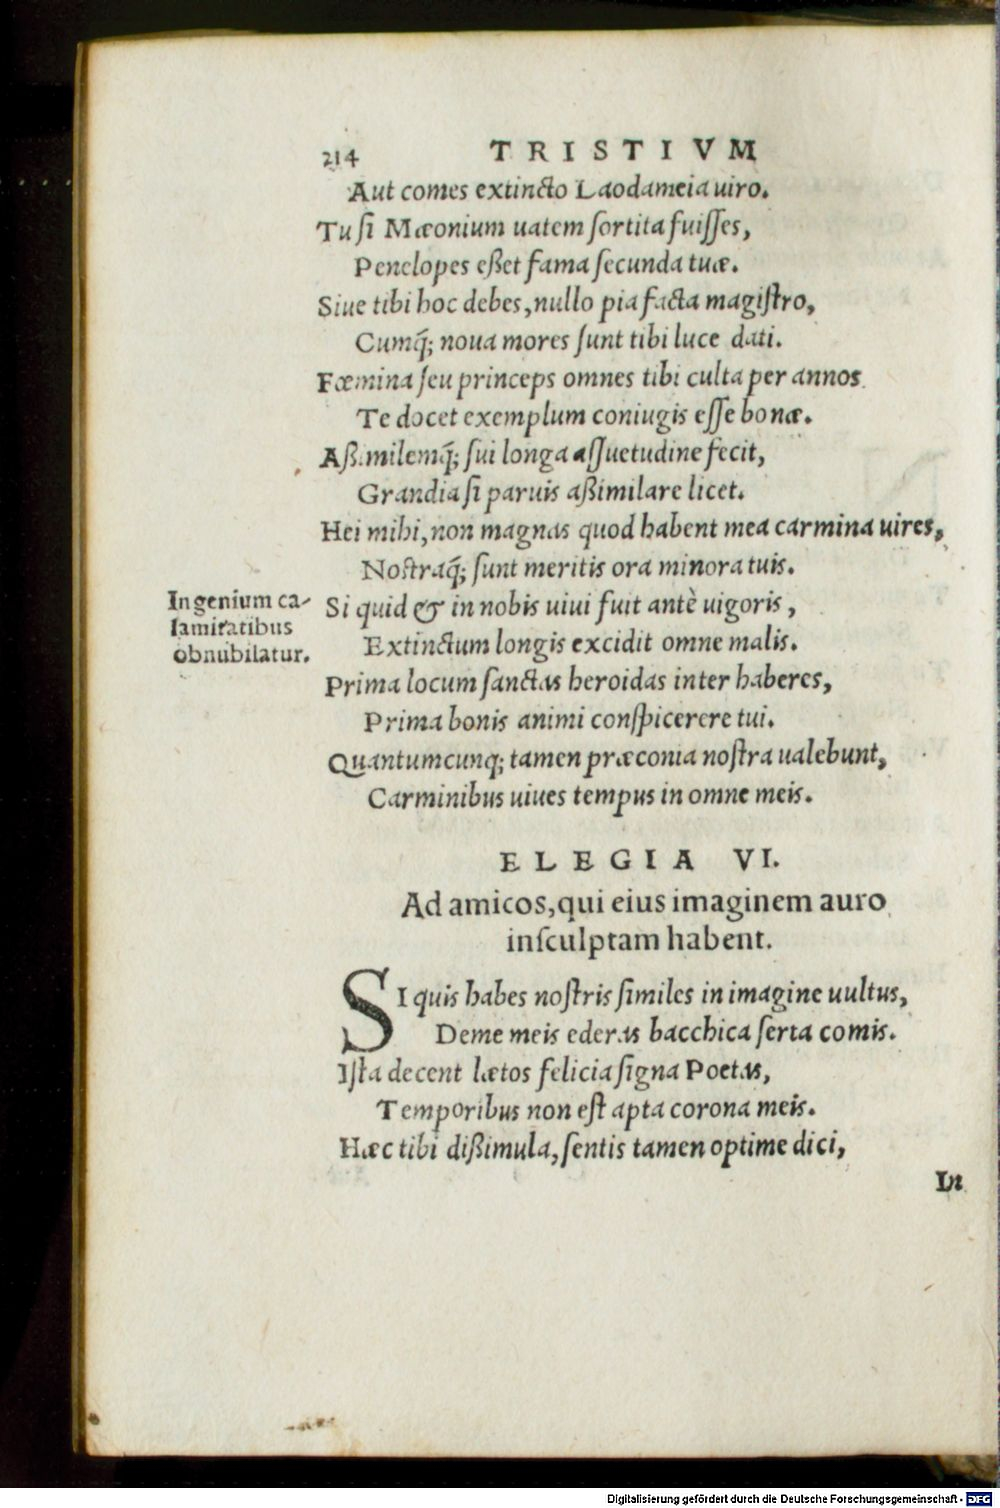 214 TRISTIVM
Aut comes extincto Laodameia uiro.
Tu ſi Mæonium uatem ſortita fuiſſes,
Penelopes eßet fama ſecunda tuæ.
Siue tibi hoc debes, nullo pia facta magiſtro,
Cumq́; noua mores ſunt tibi luce dati.
Fœmina ſeu princeps omnes tibi culta per annos
Te docet exemplum coniugis eſſe bonæ.
Aßimilemq́; ſui longa aſſuetudine fecit,
Grandia ſi paruis aßimilare licet.
Hei mihi, non magnas quod habent mea carmina uires,
Noſtraq́; ſunt meritis ora minora tuis.
Ingenium ca-
lamitatibus
obnubilatur.
Si quid & in nobis uiui fuit antè uigoris,
Extinctum longis excidit omne malis.
Prima locum ſanctas heroidas inter haberes,
Prima bonis animi conſpicerere tui.
Quantumcunq; tamen præconia noſtra ualebunt,
Carminibus uiues tempus in omne meis.
ELEGIA VI.
Ad amicos, qui eius imaginem auro
inſculptam habent.
SI quis habes noſtris ſimiles in imagine uultus,
Deme meis ederas bacchica ſerta comis.
Iſta decent lætos felicia ſigna Poetas,
Temporibus non eſt apta corona meis.
Hæc tibi dißimula, ſentis tamen optime dici,
In
Digitalisierung gefördert durch die Deutsche Forschungsgemeinschaft - DFG